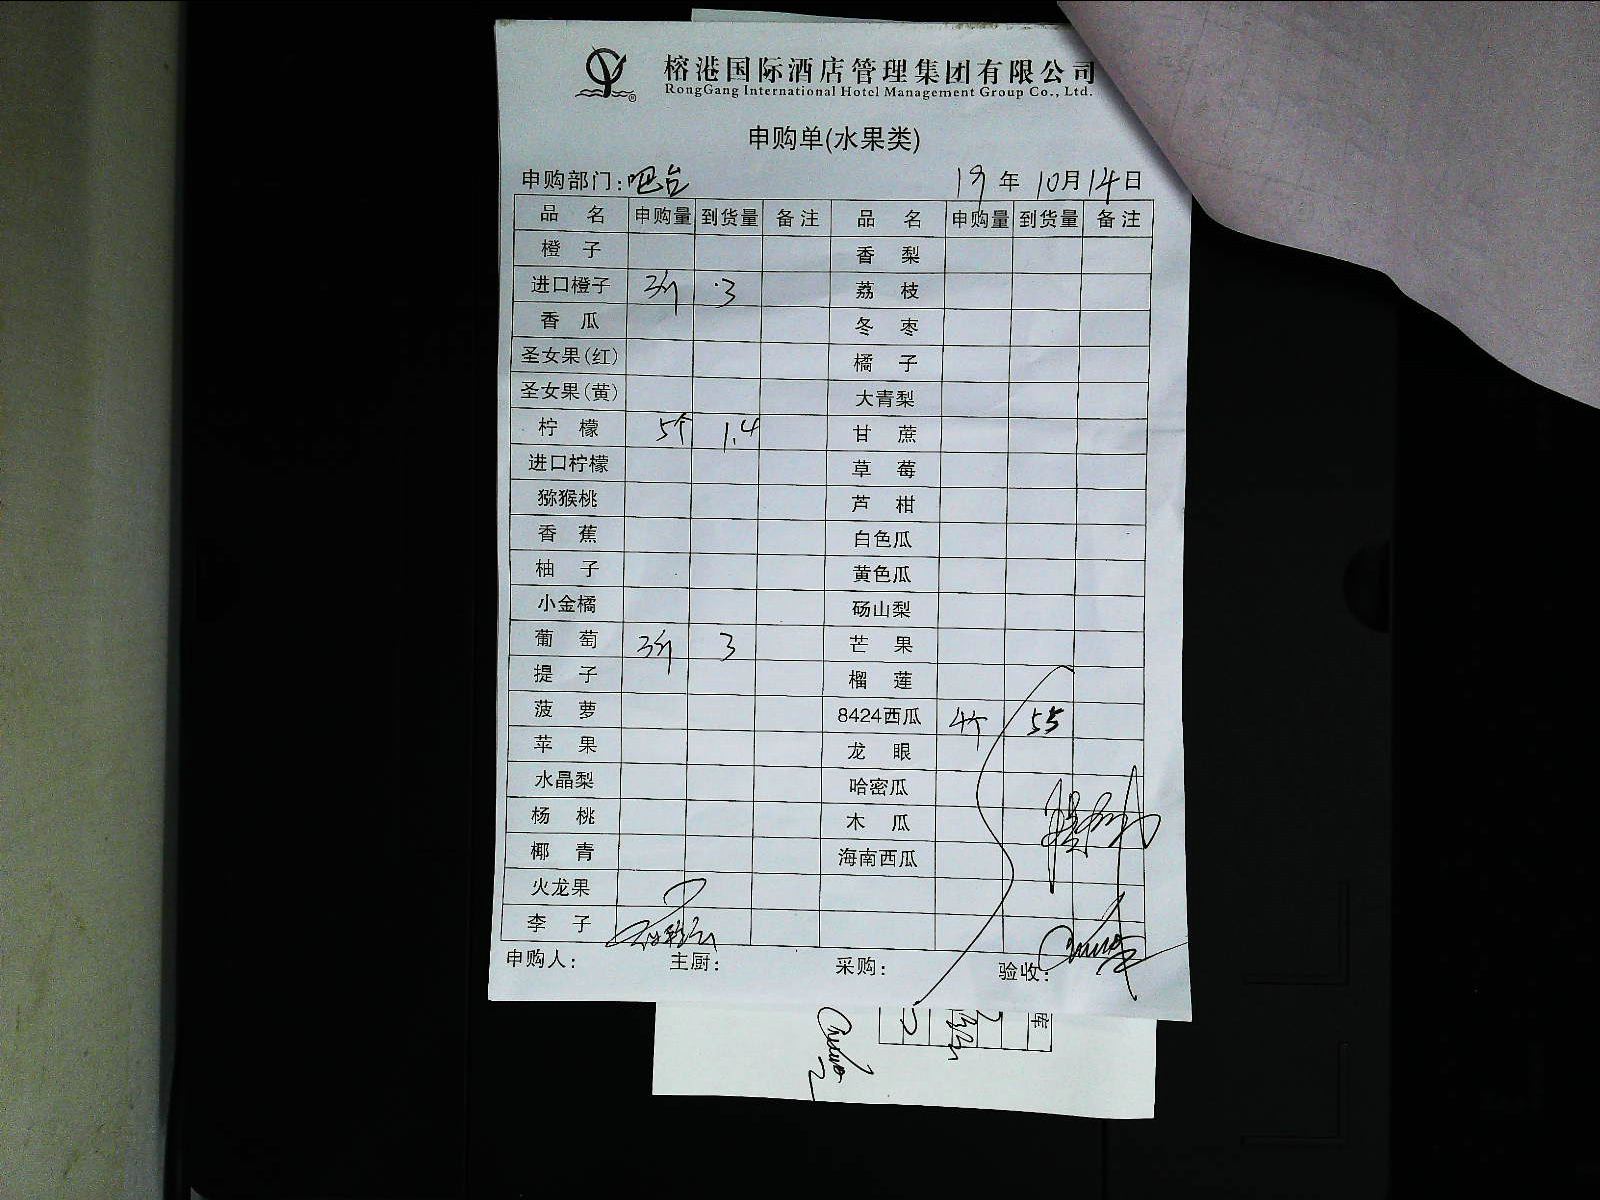 榕港国际酒店管理集团有限公司
RongGang International Hotel Management Group Co., Ltd.
申购单(水果类)
申购部门:吧台 19年10月14日
品名 申购量 到货量 备注 品名 申购量 到货量 备注
橙子 香梨
进口橙子 3斤 3 荔枝
香瓜 冬枣
圣女果(红) 橘子
圣女果(黄) 大青梨
柠檬 5个 1.4 甘蔗
进口柠檬 草莓
猕猴桃 芦柑
香蕉 白色瓜
柚子 黄色瓜
小金橘 砀山梨
葡萄 3斤 3 芒果
提子 榴莲
菠萝 8424西瓜 4个 55
苹果 龙眼
水晶梨 哈密瓜
杨桃 木瓜
椰青 海南西瓜
火龙果
李子
申购人: 主厨: 采购: 验收:
库